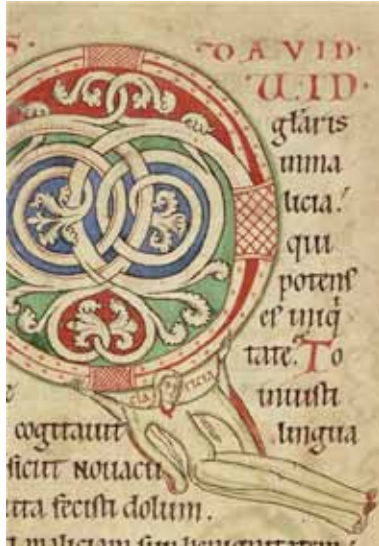 S. DAVID.
W. ID.
glaris
inma
licia.
qui
potens
es iniq̇
tate. To
inuisti
cogitauit lingua
sicut nouacu
uta fecisti dolum.